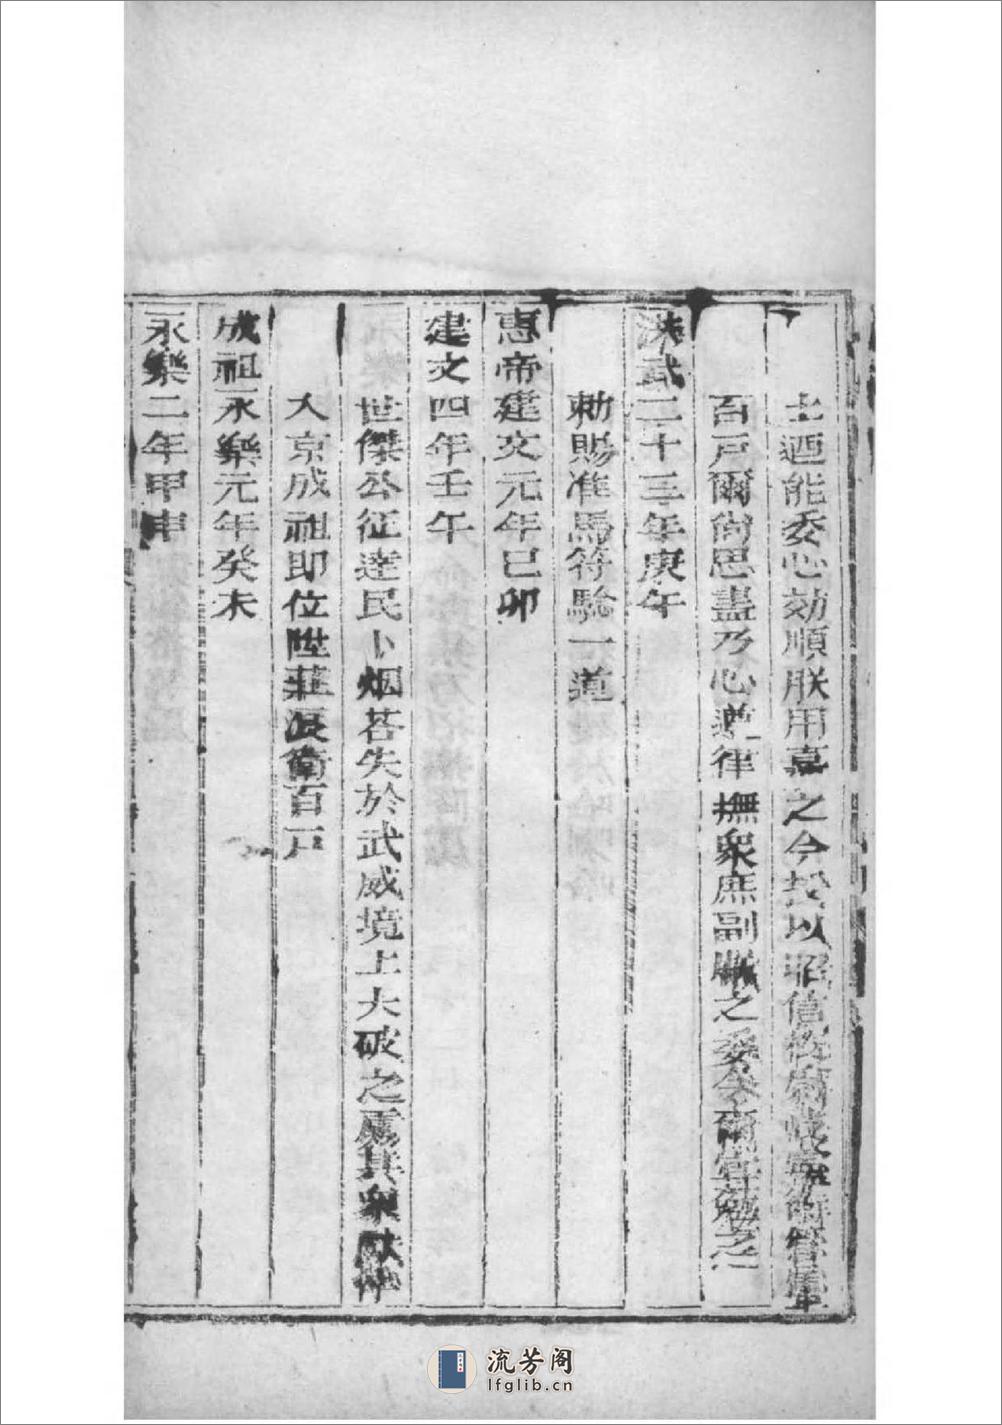 土迺能委心効順朕用嘉之今授以昭信校尉
管軍
百戶爾尚思盡乃心遵律撫衆庶副朕之委今爾宜勉之
洪武二十三年庚午
勅賜准馬符驗一道
惠帝建文元年己卯
建文四年壬午
世傑公征達民卜烟苔失於武威境上大破之虜其衆獻俘
入京成祖即位陞莊浪衛百戶
成祖永樂元年癸未
永樂二年甲申
流芳阁
lfglib.cn